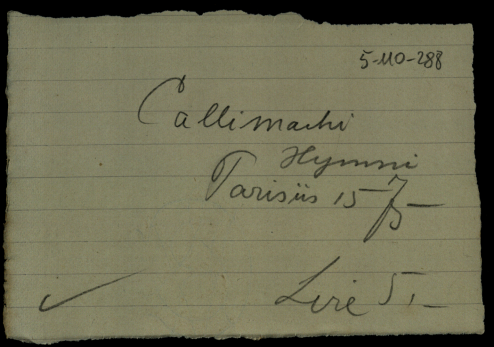 5-110-288
Callimachi
Hymni
Parisiis 1575
Lire 5,-